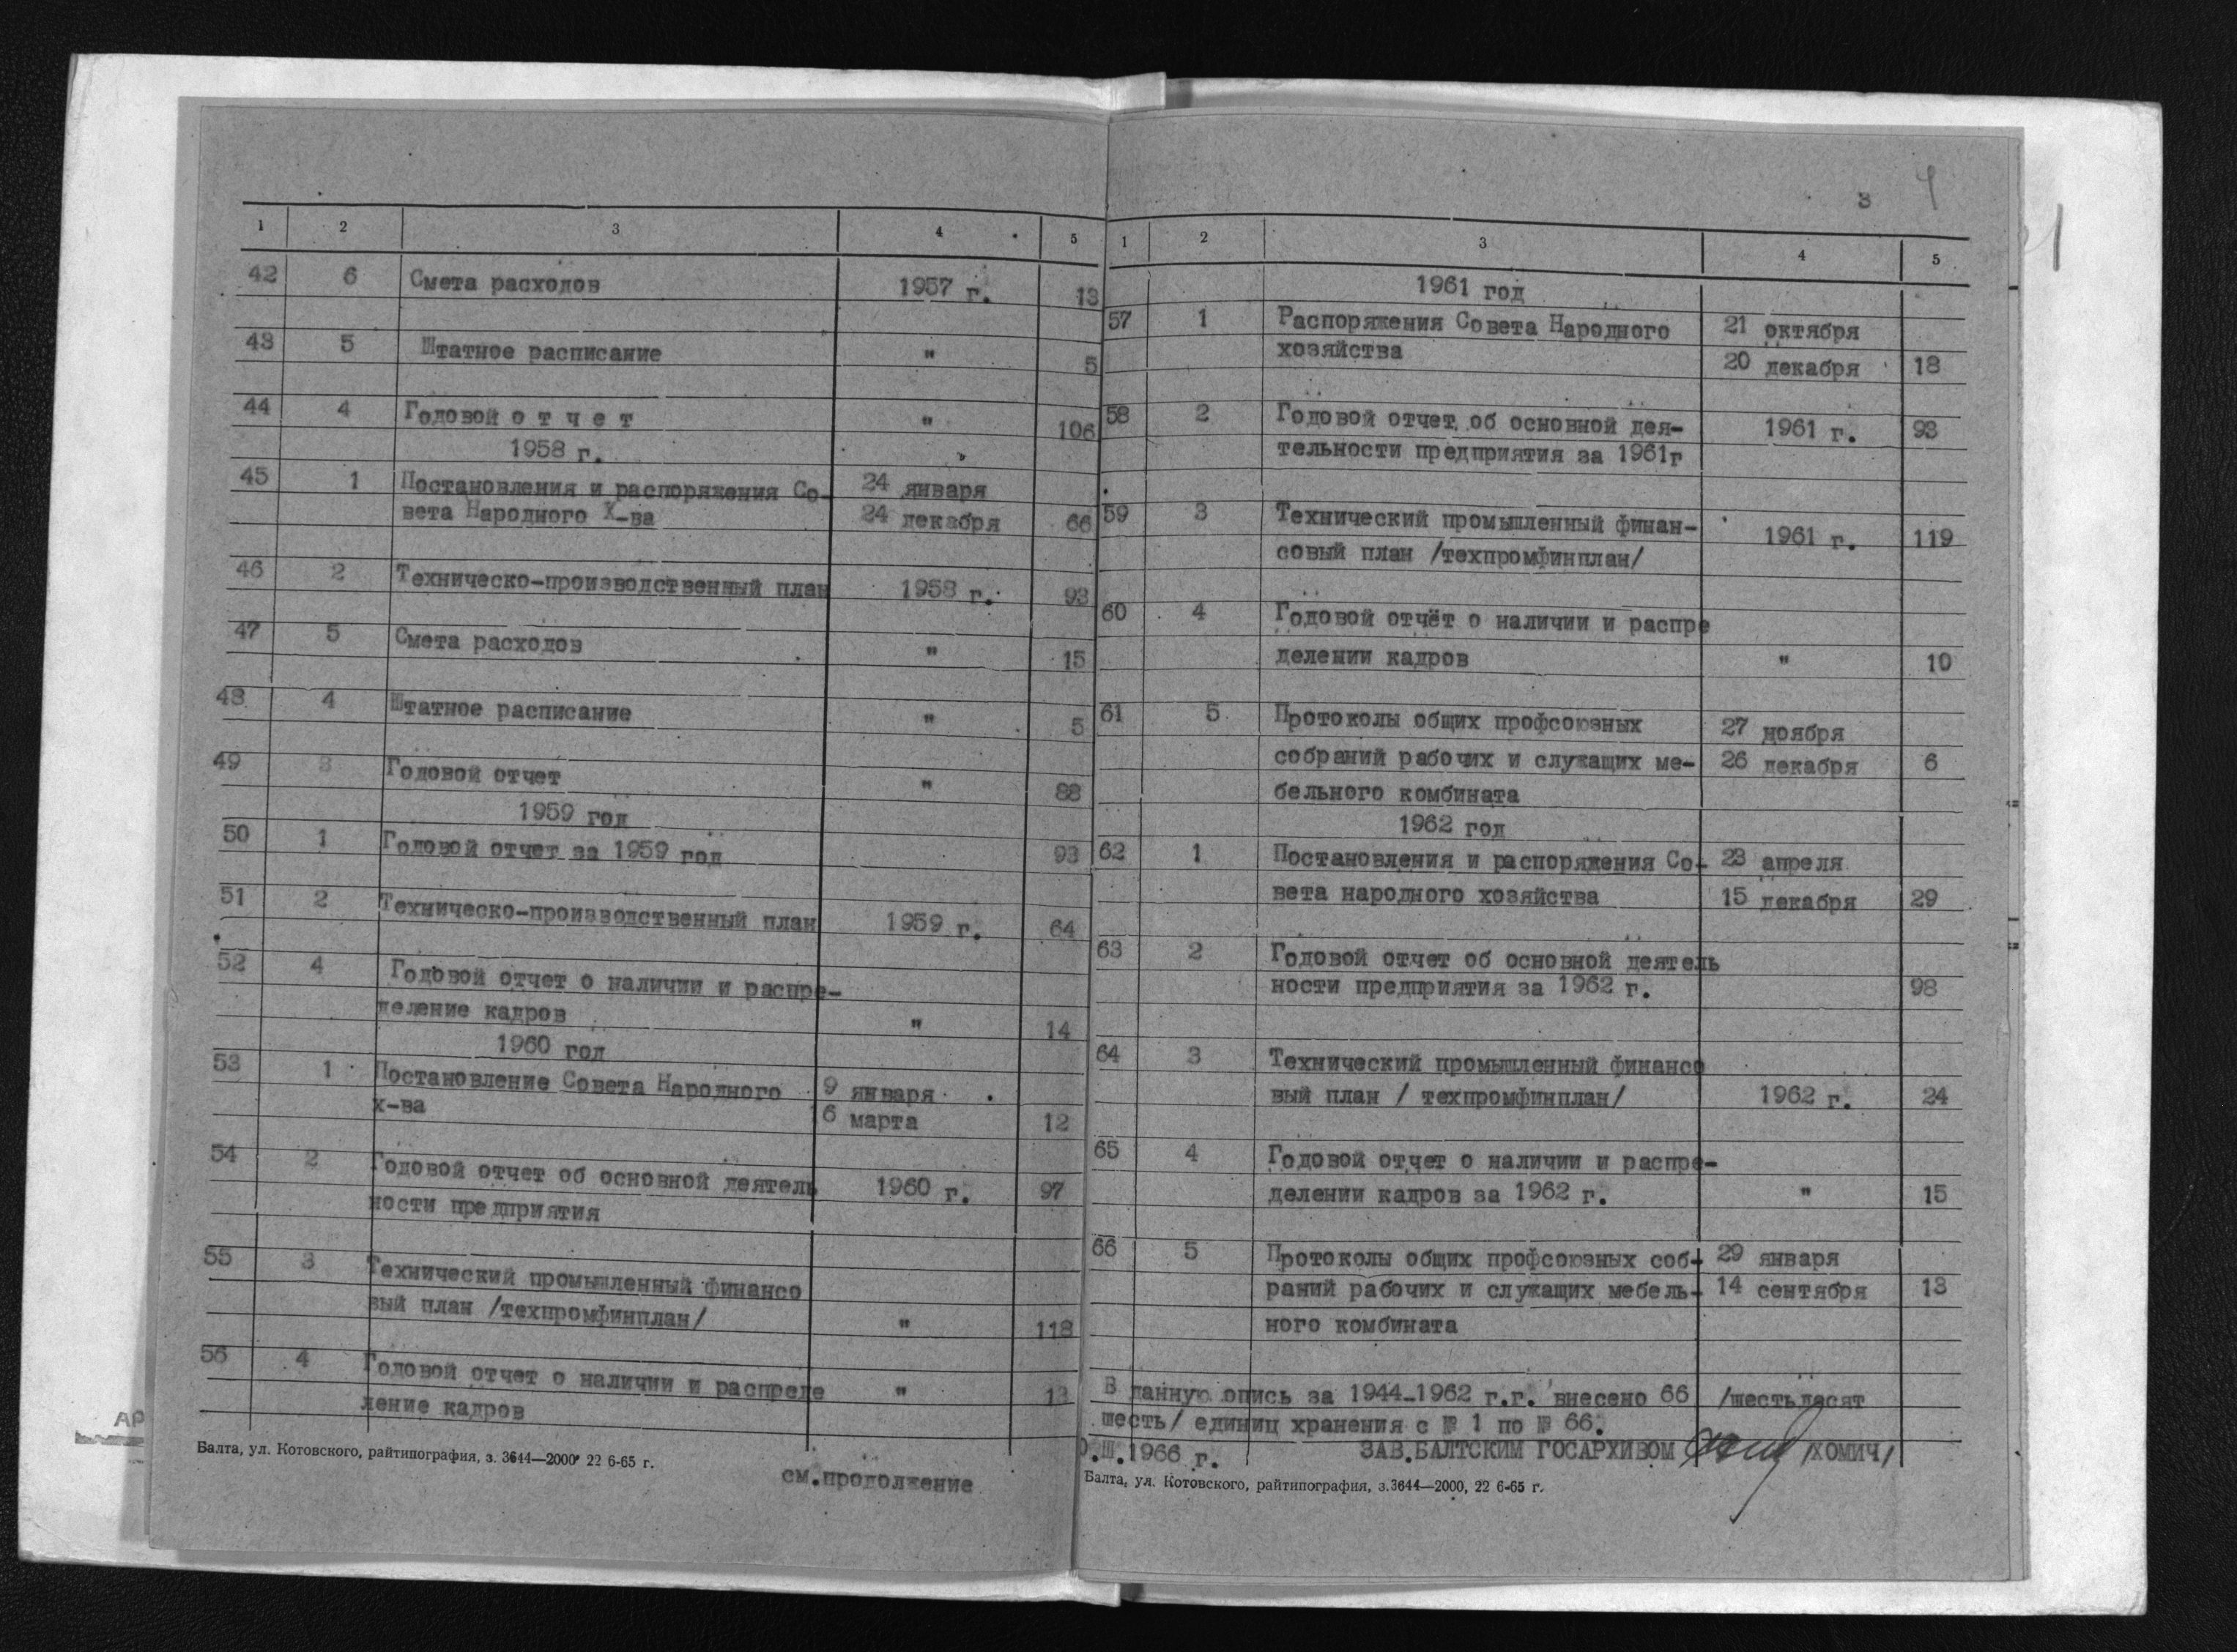 1 2 3 4 5
42 6 Смета расходов 1957 г. 13
43 5 Штатное расписание " 5
44 4 Годовой о т ч е т " 106
1958 г.
45 1 Постановления и распоряжения Со- 24 января
вета Народного Х-ва 24 декабря 66
46 2 Техническо-производственный план 1958 г. 93
47 5 Смета расходов " 15
48 4 Штатное расписание " 5
49 3 Годовой отчет " 88
1959 год
50 1 Годовой отчет за 1959 год 93
51 2 Техническо-производственный план 1959 г. 64
52 4 Годовой отчет о наличии и распре-
деление кадров " 14
1960 год
53 1 Постановление Совета Народного 9 января
х-ва 16 марта 12
54 2 Годовой отчет об основной деятель 1960 г. 97
ности предприятия
55 3 Технический промышленный финансо
вый план /техпромфинплан/ " 118
56 4 Годовой отчет о наличии и распреде " 13
ление кадров
Балта, ул. Котовского, райтипография, з. 3644—2000 22 6-65 г.
см.продолжение
3 4
1 2 3 4 5
1961 год
57 1 Распоряжения Совета Народного 21 октября
хозяйства 20 декабря 18
58 2 Годовой отчет об основной дея- 1961 г. 93
тельности предприятия за 1961г
59 3 Технический промышленный финан- 1961 г. 119
совый план /техпромфинплан/
60 4 Годовой отчёт о наличии и распре
делении кадров " 10
61 5 Протоколы общих профсоюзных 27 ноября
собраний рабочих и служащих ме- 26 декабря 6
бельного комбината
1962 год
62 1 Постановления и распоряжения Со- 23 апреля
вета народного хозяйства 15 декабря 29
63 2 Годовой отчет об основной деятель
ности предприятия за 1962 г. 98
64 3 Технический промышленный финансо
вый план / техпромфинплан/ 1962 г. 24
65 4 Годовой отчет о наличии и распре-
делении кадров за 1962 г. " 15
66 5 Протоколы общих профсоюзных соб- 29 января
раний рабочих и служащих мебель- 14 сентября 13
ного комбината
В данную опись за 1944-1962 г.г. внесено 66 /шестьдесят
шесть/ единиц хранения с № 1 по № 66.
.Ш.1966 г. ЗАВ.БАЛТСКИМ ГОСАРХИВОМ /ХОМИЧ/
Балта, ул. Котовского, райтипография, з.3644—2000, 22 6-65 г.